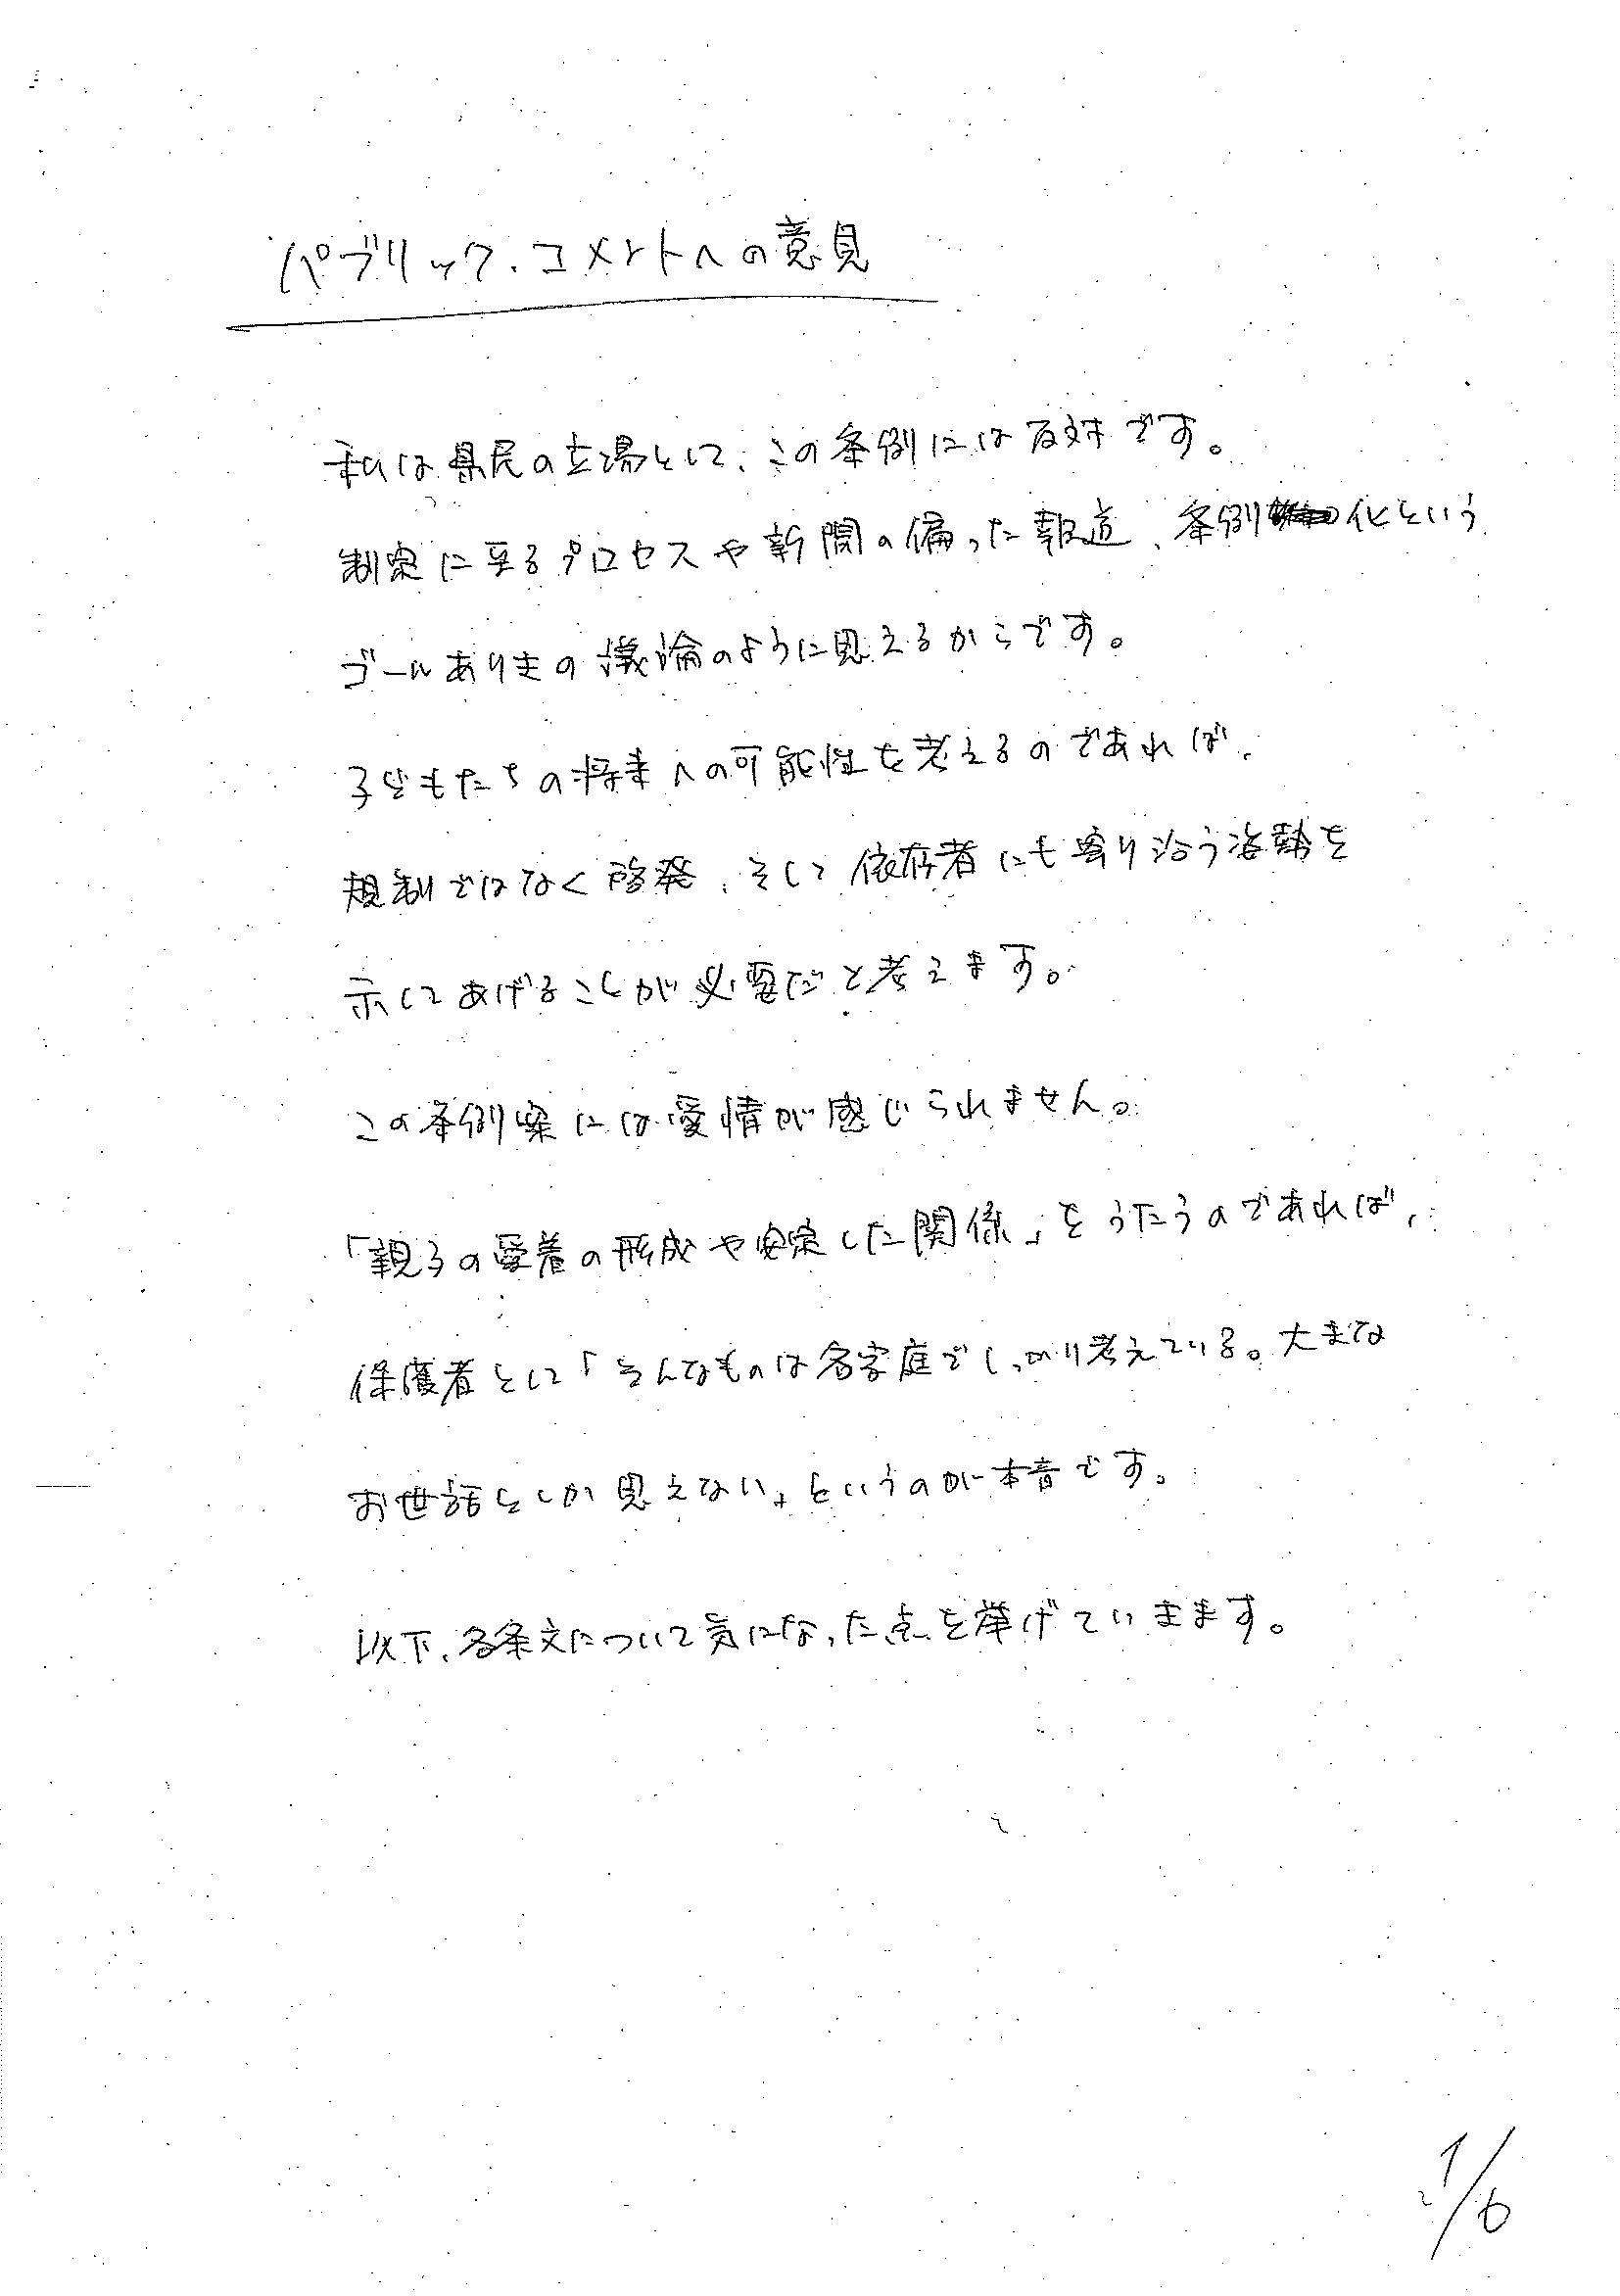 パブリック・コメントへの意見
私は県民の立場として、この条例には反対です。
制定に至るプロセスや新聞の偏った報道、条例化という
ゴールありきの議論のように思えるからです。
子どもたちの将来への可能性を考えるのであれば、
規制ではなく啓発、そして依存者にも寄り沿う姿勢を
示してあげることが必要だと考えます。
この条例案には愛情が感じられません。
「親子の愛着の形成や安定した関係」をうたうのであれば、
保護者として「そんなものは各家庭でしっかり考えている。大きな
お世話としか思えない」というのが本音です。
以下、各条文について気になった点を挙げていきます。
1/6